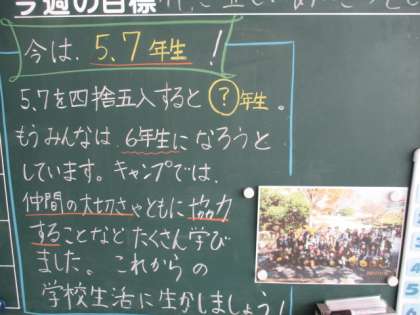 今週の目標
今は、5.7年生!
5.7を四捨五入すると?年生。
もうみんなは6年生になろうと
しています。キャンプでは、
仲間の大切さやともに協力
することなどたくさん学び
ました。これからの
学校生活に生かしましょう!